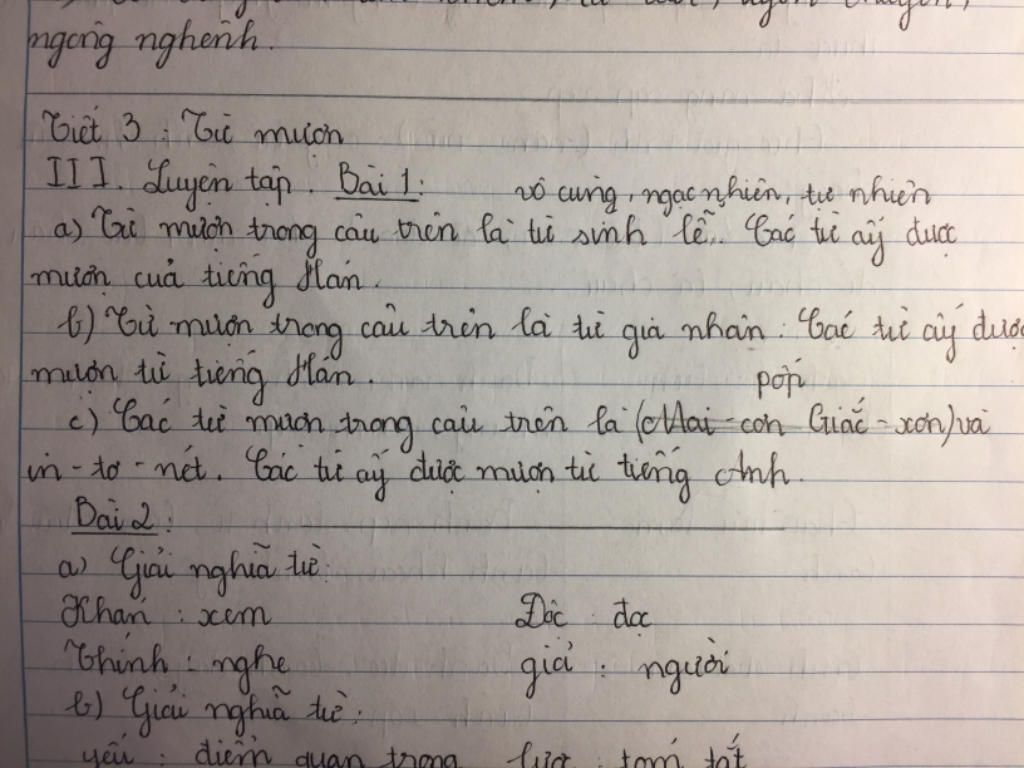 ngông nghênh.
Tiết 3 : Từ mượn
III. Luyện tập. Bài 1: vô cùng, ngạc nhiên, tự nhiên
a) Từ mượn trong câu trên là từ sính lễ. Các từ ấy được
mượn của tiếng Hán.
b) Từ mượn trong câu trên là từ gia nhân. Các từ ấy được
mượn từ tiếng Hán.
pốp
c) Các từ mượn trong câu trên là (Mai-cơn Giắc-xơn) và
in-tơ-nét. Các từ ấy được mượn từ tiếng Anh.
Bài 2:
a) Giải nghĩa từ:
Khán : xem Độc : đọc
Thính : nghe giả : người
b) Giải nghĩa từ:
yếu : điểm quan trọng lược : tóm tắt